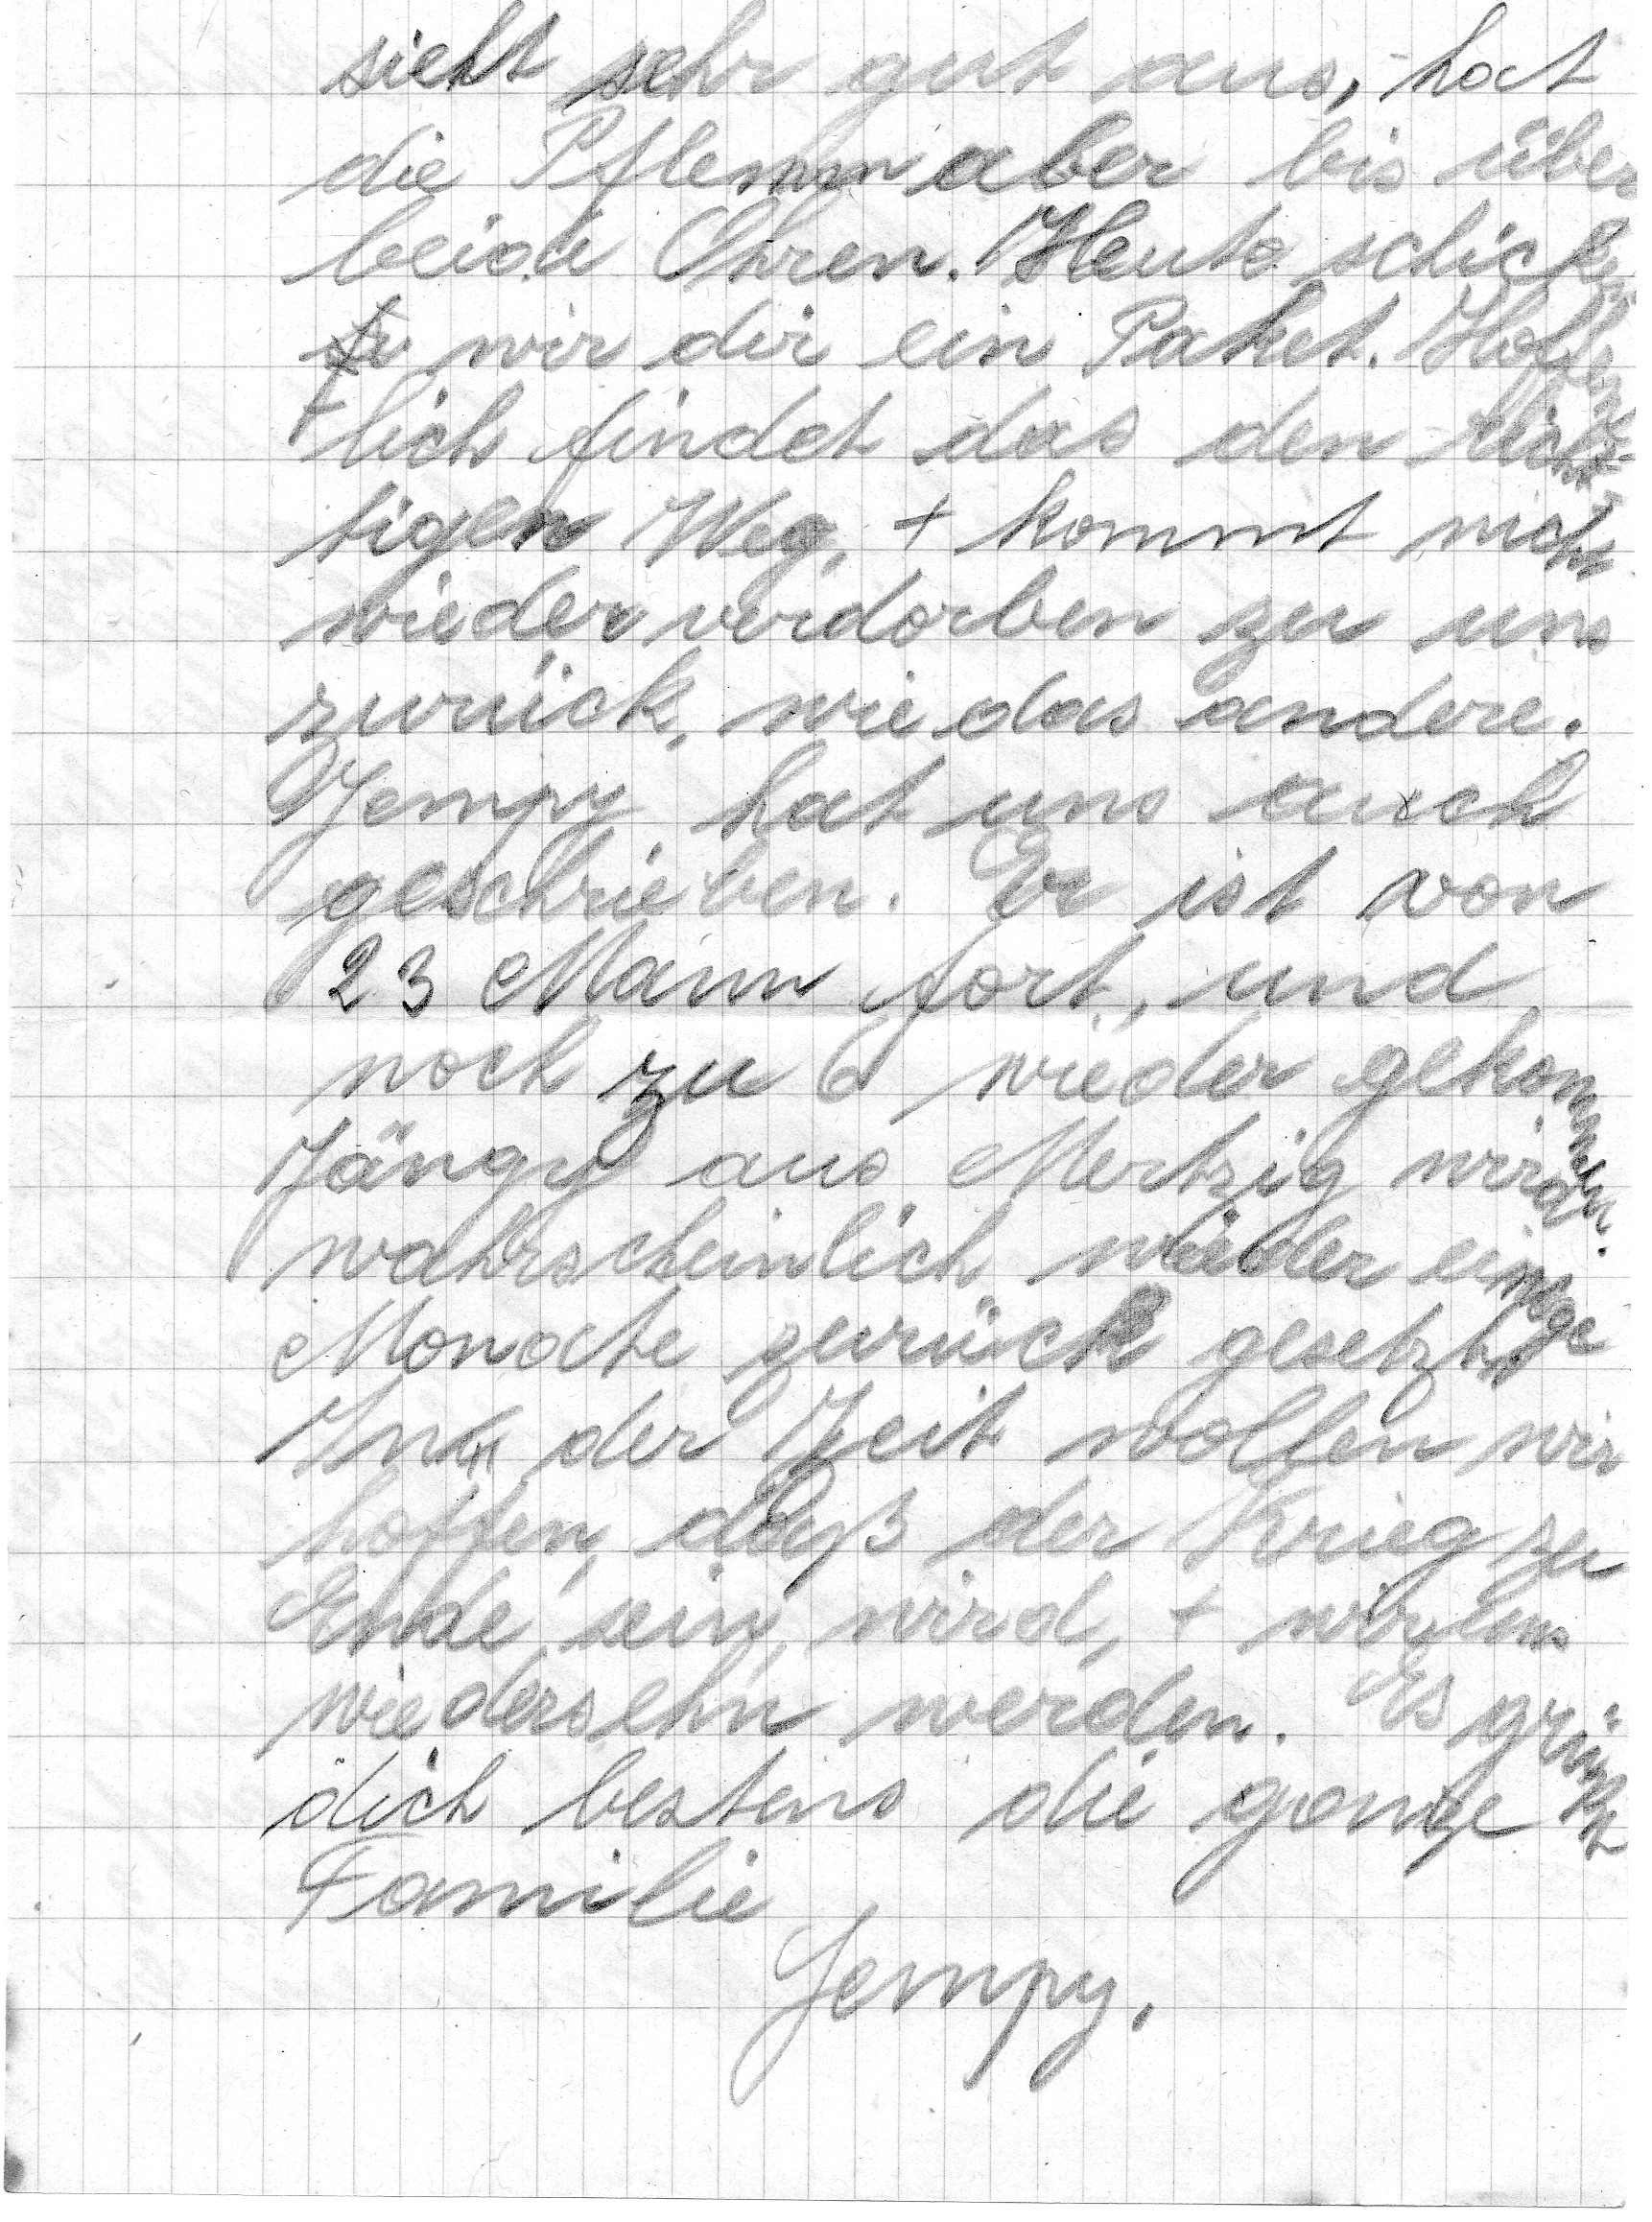 sieht sehr gut aus, hat
die Pflemm aber bis über
beide Ohren. Heute schick
wir dir ein Paket. Hoffent
lich findet das den rich-
tigen Weg, + kommt nicht
wieder verdorben zu uns
zurück, wie das andere.
Jempy hat uns auch
geschrieben. Er ist von
23 Mann fort, und
noch zu 6 wieder gekommen.
Jängy aus Mertzig wird
wahrscheinlich wieder einige
Monate zurück gesetzt
In der Zeit wollen wir
hoffen, daß der Krieg zu
Ende sein wird, + wir uns
wiedersehn werden. Es grüßt
dich bestens die ganze
Familie
Jempy.